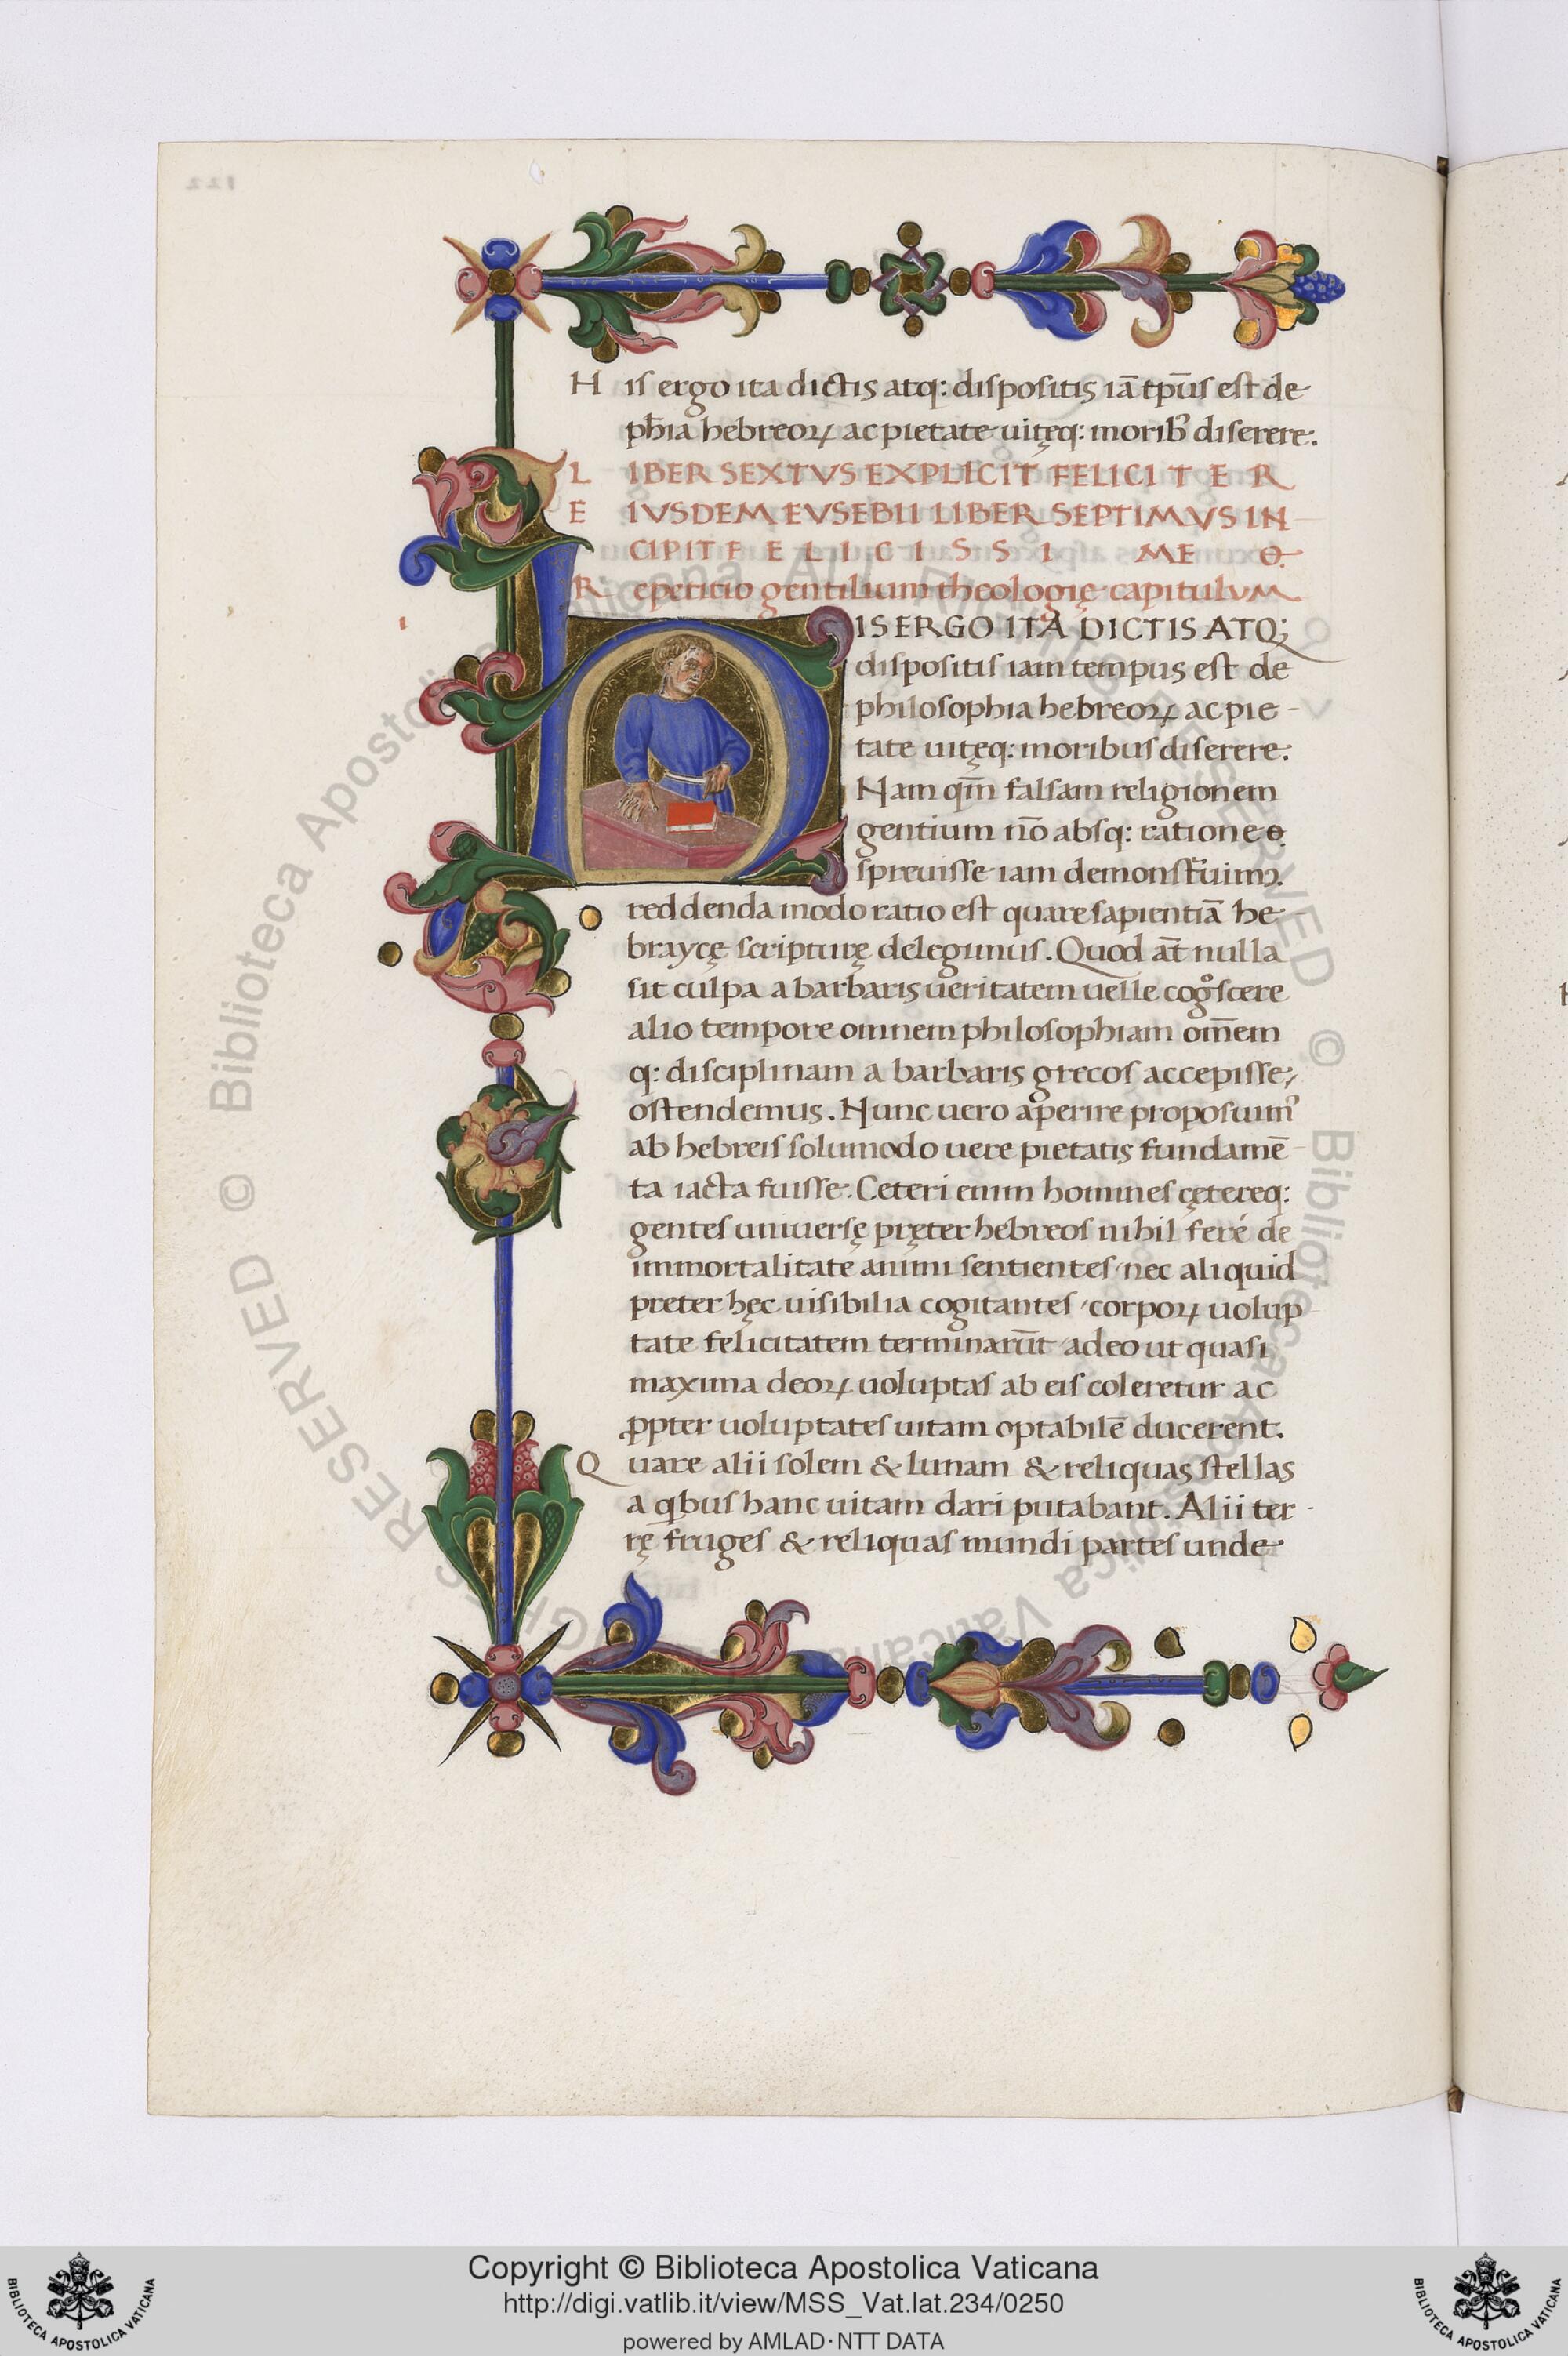 His ergo ita dictis atq: dispositis iā tp̄us est de
ph̄ia hebreoꝝ ac pietate uitęq: moribꝰ diserere.
LIBER SEXTVS EXPLICIT FELICITER
EIVSDEM EVSEBII LIBER SEPTIMVS IN
CIPIT FELICISSIME Q.
Repetitio gentilium theologię capitulum
HIS ERGO ITA DICTIS ATQ;
dispositis iam tempus est de
philosophia hebreoꝝ ac pie-
tate uitęq: moribus diserere.
Nam qm̄ falsam religionem
gentium nō absq: ratione
spreuisse iam demonstrauimꝰ.
reddenda modo ratio est quare sapientiā he-
braycę scripturę delegimus. Quod at̄ nulla
sit culpa a barbaris ueritatem uelle cogºscere
alio tempore omnem philosophiam om̄em
q: disciplinam a barbaris grecos accepisse;
ostendemus. Nunc uero aperire proposuimꝰ
ab hebreis solumodo uere pietatis fundamē-
ta iacta fuisse. Ceteri enim homines cętereq:
gentes uniuersę pręter hebreos nihil feré de
immortalitate animi sentientes / nec aliquid
preter hęc uisibilia cogitantes / corpoꝝ uolup-
tate felicitatem terminarūt / adeo ut quasi
maxima deoꝝ uoluptas ab eis coleretur ac
ꝓpter uoluptates uitam optabilē ducerent.
Quare alii solem & lunam & reliquas stellas
a qbus hanc uitam dari putabant. Alii ter-
rę fruges & reliquas mundi partes unde
221
© Biblioteca Apostolica Vaticana ALL RIGHTS RESERVED © Biblioteca Apostolica Vaticana ALL RIGHTS RESERVED
Copyright © Biblioteca Apostolica Vaticana
http://digi.vatlib.it/view/MSS_Vat.lat.234/0250
powered by AMLAD·NTT DATA
BIBLIOTECA APOSTOLICA VATICANA
BIBLIOTECA APOSTOLICA VATICANA